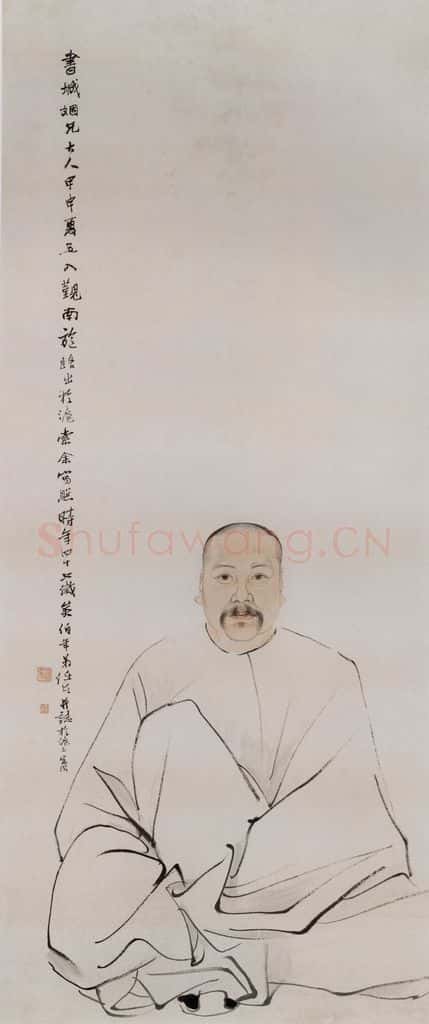 書城姻兄大人甲申夏五入覲南旋路出於滬索余寫照時年四十七歲矣伯年弟任頤并誌於滬上
Shufawang.CN